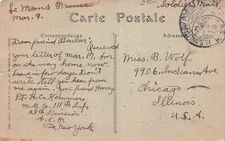 Le Mans France
Mar. 9.
Soldier's Mail
Carte Postale
Correspondance
Dear friend
Received
your letter of Mar. 17, for on
on the way home now.
leave in few days. Don't
write till you hear
from me. Your friend Harry
Co. 111th
28th Division
A.E.F.
New York
Miss. B. Wolf.
9906. Indiana Ave
Chicago
Illinois
U.S.A.